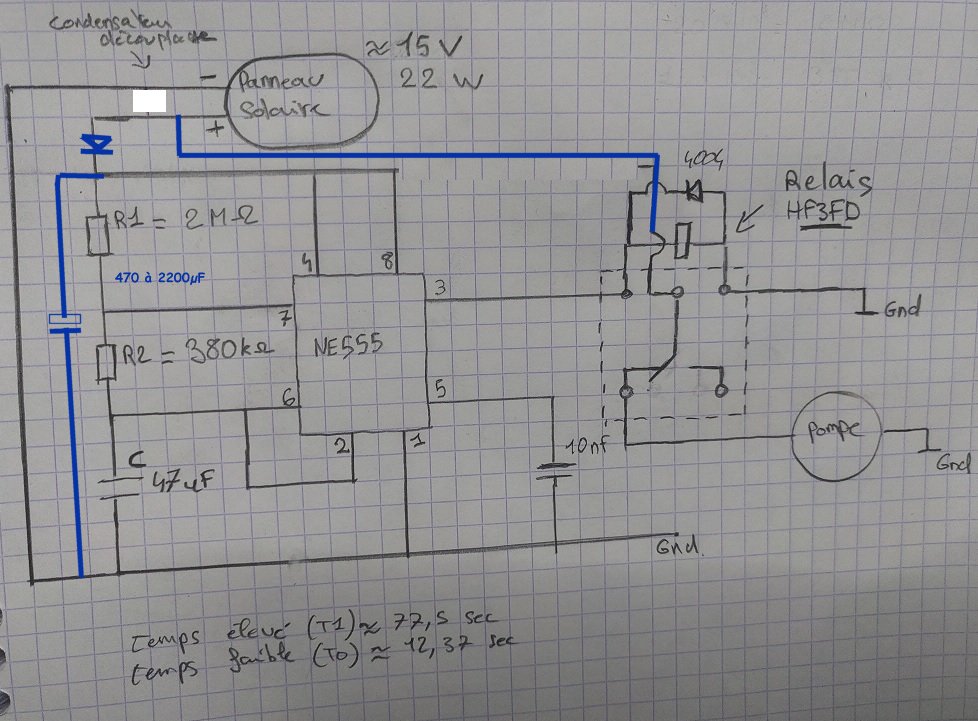 Condensateur
découplage
≈ 15 V
22 W
-
Panneau
Solaire
+
4004
-
Relais
HF3FD
R1 = 2 MΩ
470 à 2200µF
4
8
3
7
Gnd
NE555
R2 = 380kΩ
5
6
Pompe
2
1
10nf
C
47uF
Gnd
Gnd.
Temps élevé (T1) ≈ 77,5 sec
temps faible (T0) ≈ 12,37 sec